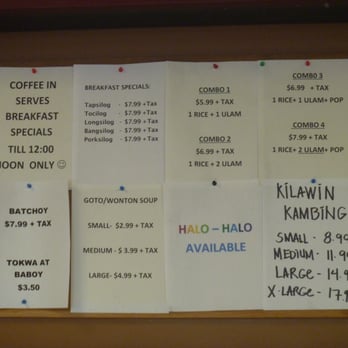 COFFEE IN
SERVES
BREAKFAST
SPECIALS
TILL 12:00
NOON ONLY ☺
BREAKFAST SPECIALS:
Tapsilog - $7.99 +Tax
Tocilog - $7.99 +Tax
Longsilog - $7.99 +Tax
Bangsilog - $7.99 +Tax
Porksilog - $7.99 +Tax
COMBO 1
$5.99 + TAX
1 RICE + 1 ULAM
COMBO 2
$6.99 + TAX
1 RICE + 2 ULAM
COMBO 3
$6.99 + TAX
1 RICE+ 1 ULAM+ POP
COMBO 4
$7.99 + TAX
1 RICE+ 2 ULAM+ POP
BATCHOY
$7.99 + TAX
TOKWA AT
BABOY
$3.50
GOTO/WONTON SOUP
SMALL- $2.99 + TAX
MEDIUM - $ 3.99 + TAX
LARGE- $4.99 + TAX
HALO – HALO
AVAILABLE
KILAWIN
KAMBING
SMALL - 8.99
MEDIUM - 11.99
LARGE - 14.9
X-LARGE - 17.9